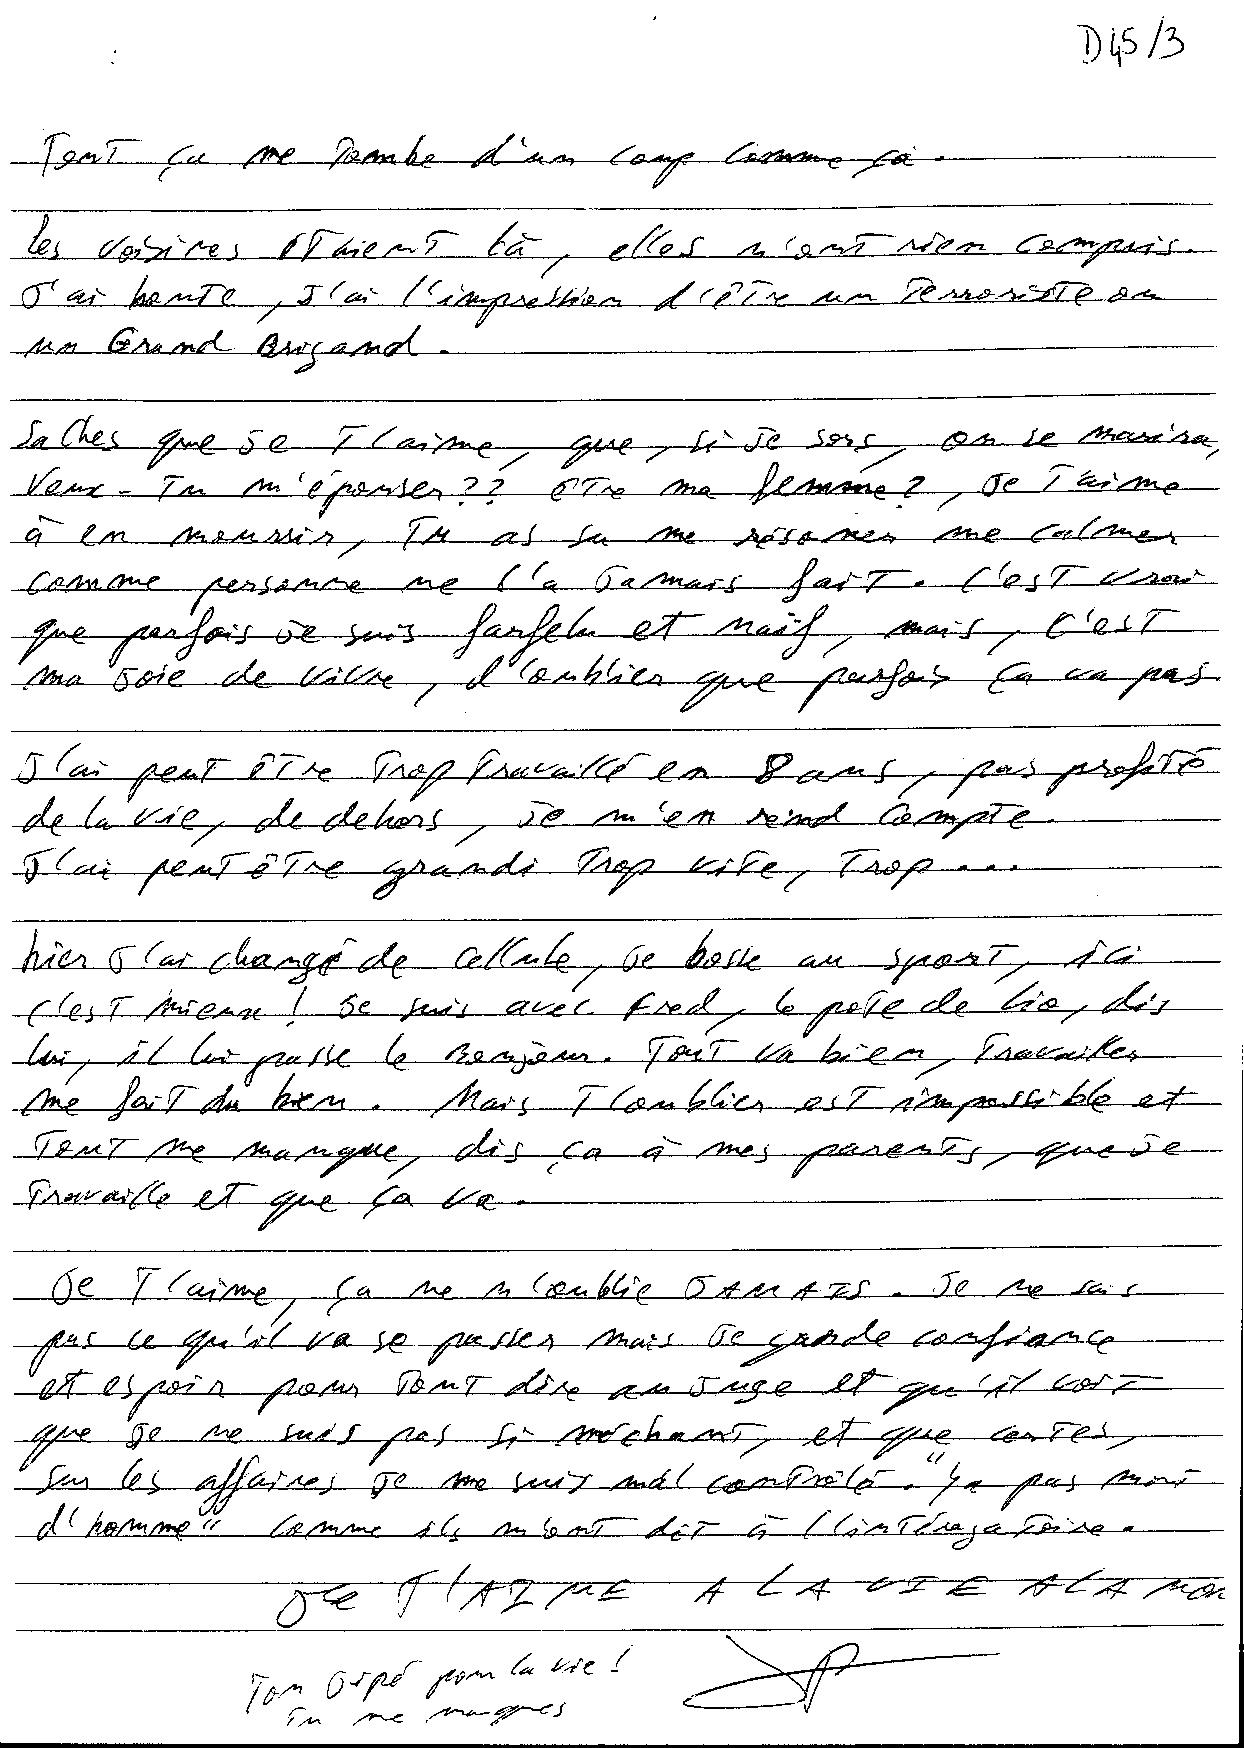 D45/3
Tout ça me tombe d'un coup comme ça.
les voisines étaient là, elles n'ont rien compris.
J'ai honte, J'ai l'impression d'être un Terroriste ou
un Grand Brigand.
Saches que Je T'aime, que, si Je sors, on se marira,
Veux-Tu m'épouser?? être ma femme?, Je T'aime
à en mourrir, Tu as su me résoner me calmer
comme personne ne l'a Jamais fait. C'est vrai
que parfois Je suis farfelu et Naïf, mais, c'est
ma Joie de vivre, d'oublier que parfois ça va pas
J'ai peut être Trop Travaillé en 8 ans, pas profité
de la vie, de dehors, Je m'en rend compte.
J'ai peut être grandi Trop vite, Trop...
hier J'ai changé de cellule, Je bosse au sport, ici
c'est mieux! Je suis avec Fred, le pote de Lio, dis
lui, il lui passe le Bonjour. Tout va bien, Travailler
me fait du bien. Mais T'oublier est impossible et
Tout me manque, dis ça à mes parents, que Je
Travaille et que ça va.
Je T'aime, ça ne n'oublie JAMAIS. Je ne sais
pas ce qu'il va se passer mais Je garde confiance
et espoir pour Tout dire au Juge et qu'il voit
que Je ne suis pas si méchant, et que certes,
sur les affaires Je me suis mal contrôlé. "Ya pas mort
d'homme" comme ils m'ont dit à l'intérogatoire.
Je T'AIME A LA VIE A LA MOR
Ton Gipé pour la vie!
Tu me manques